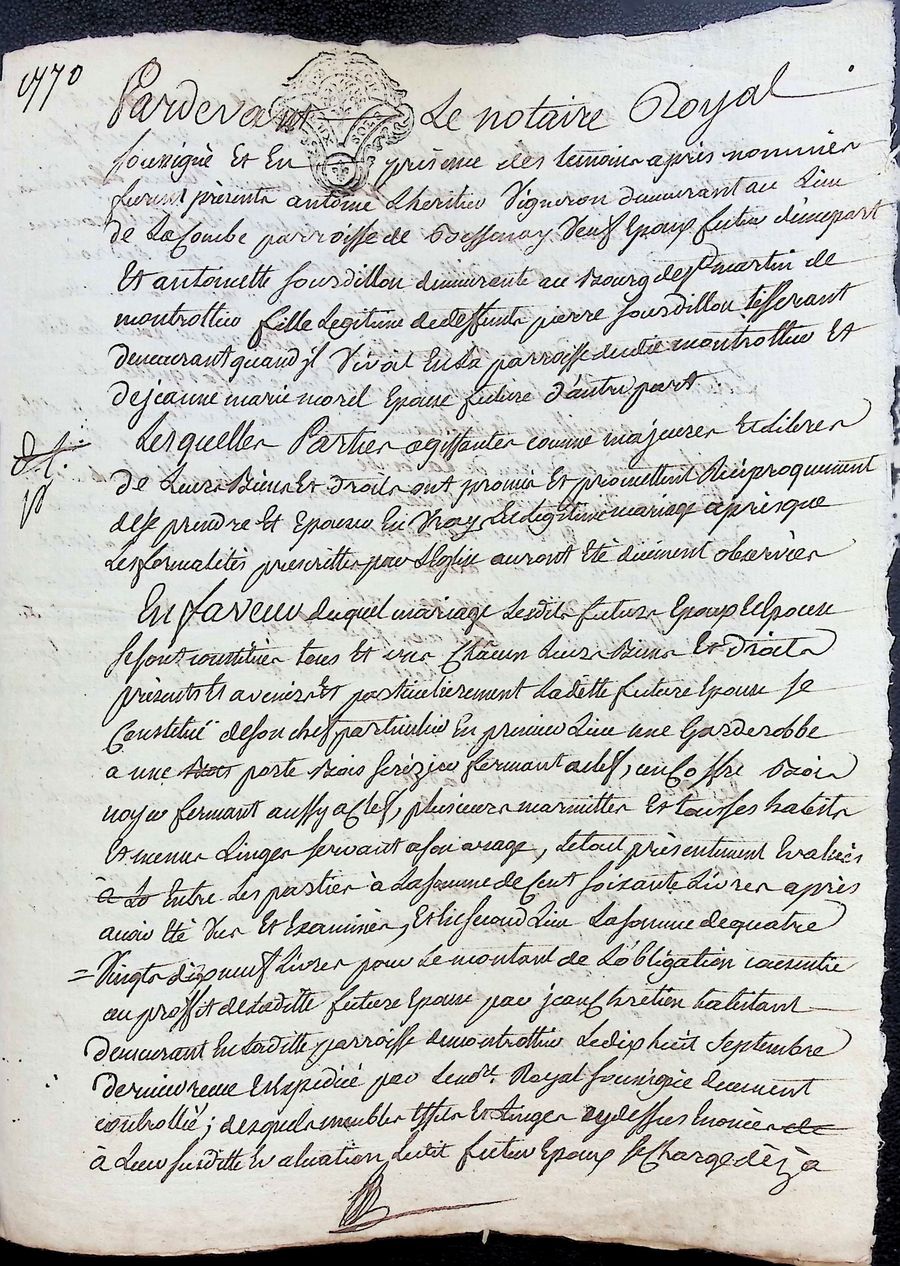 1770
Pardevant Le notaire Royal
soussigné Et En présence des temoins après nommés
furent présents antoine Lheritier Vigneron demeurant au Lieu
de La Combe parroisse de Bessenay Veuf Epoux futur d'une part
Et antoinette Jourdillon demeurante au Bourg de St martin de
montrottier fille Legitime de deffunts pierre Jourdillon tisserant
demeurant quand jl Vivoit En La parroisse dudit montrottier Et
de jeanne marie morel Epouse future d'autre part
Lesquelles Parties agissantes comme majeures Et Libres
de Leurs Biens Et droits ont promis Et promettent Réciproquement
de se prendre Et Epouser En Vray Et Legitime mariage après que
Les formalités prescrittes par L'Eglise auront été duement observées
En faveur duquel mariage Lesdits futurs Epoux Et Epouse
se sont constitués tous Et uns Chacun Leurs Biens Et droits
présents Et avenirs Et particulierement Laditte future Epouse se
Constitüe de son chef particulier En premier Lieu une Garderobbe
a une porte Bois serézier fermant a clef, un Coffre Bois
noyer fermant aussy a Clef, plusieurs marmittes Et tous ses habits
Et menus Linges servant a son usage, le tout présentement Evalués
à La Entre Les parties à La somme de Cent soixante Livres après
avoir été Vus Et Examinés, Et En second Lieu La somme de quatre
= Vingts dix neuf Livres pour Le montant de L'obligation consentie
au proffit de Laditte future Epouse par jean Chrétien habitant
demeurant En Laditte parroisse de montrottier Le dix huit Septembre
dernier reçue Et Expediée par Le nore. Royal soussigné duement
controllée; desquels meubles Effets Et Linges cy dessus Enoncés de
à Leur susditte Evaluation Ledit futur Epoux se Charge déja